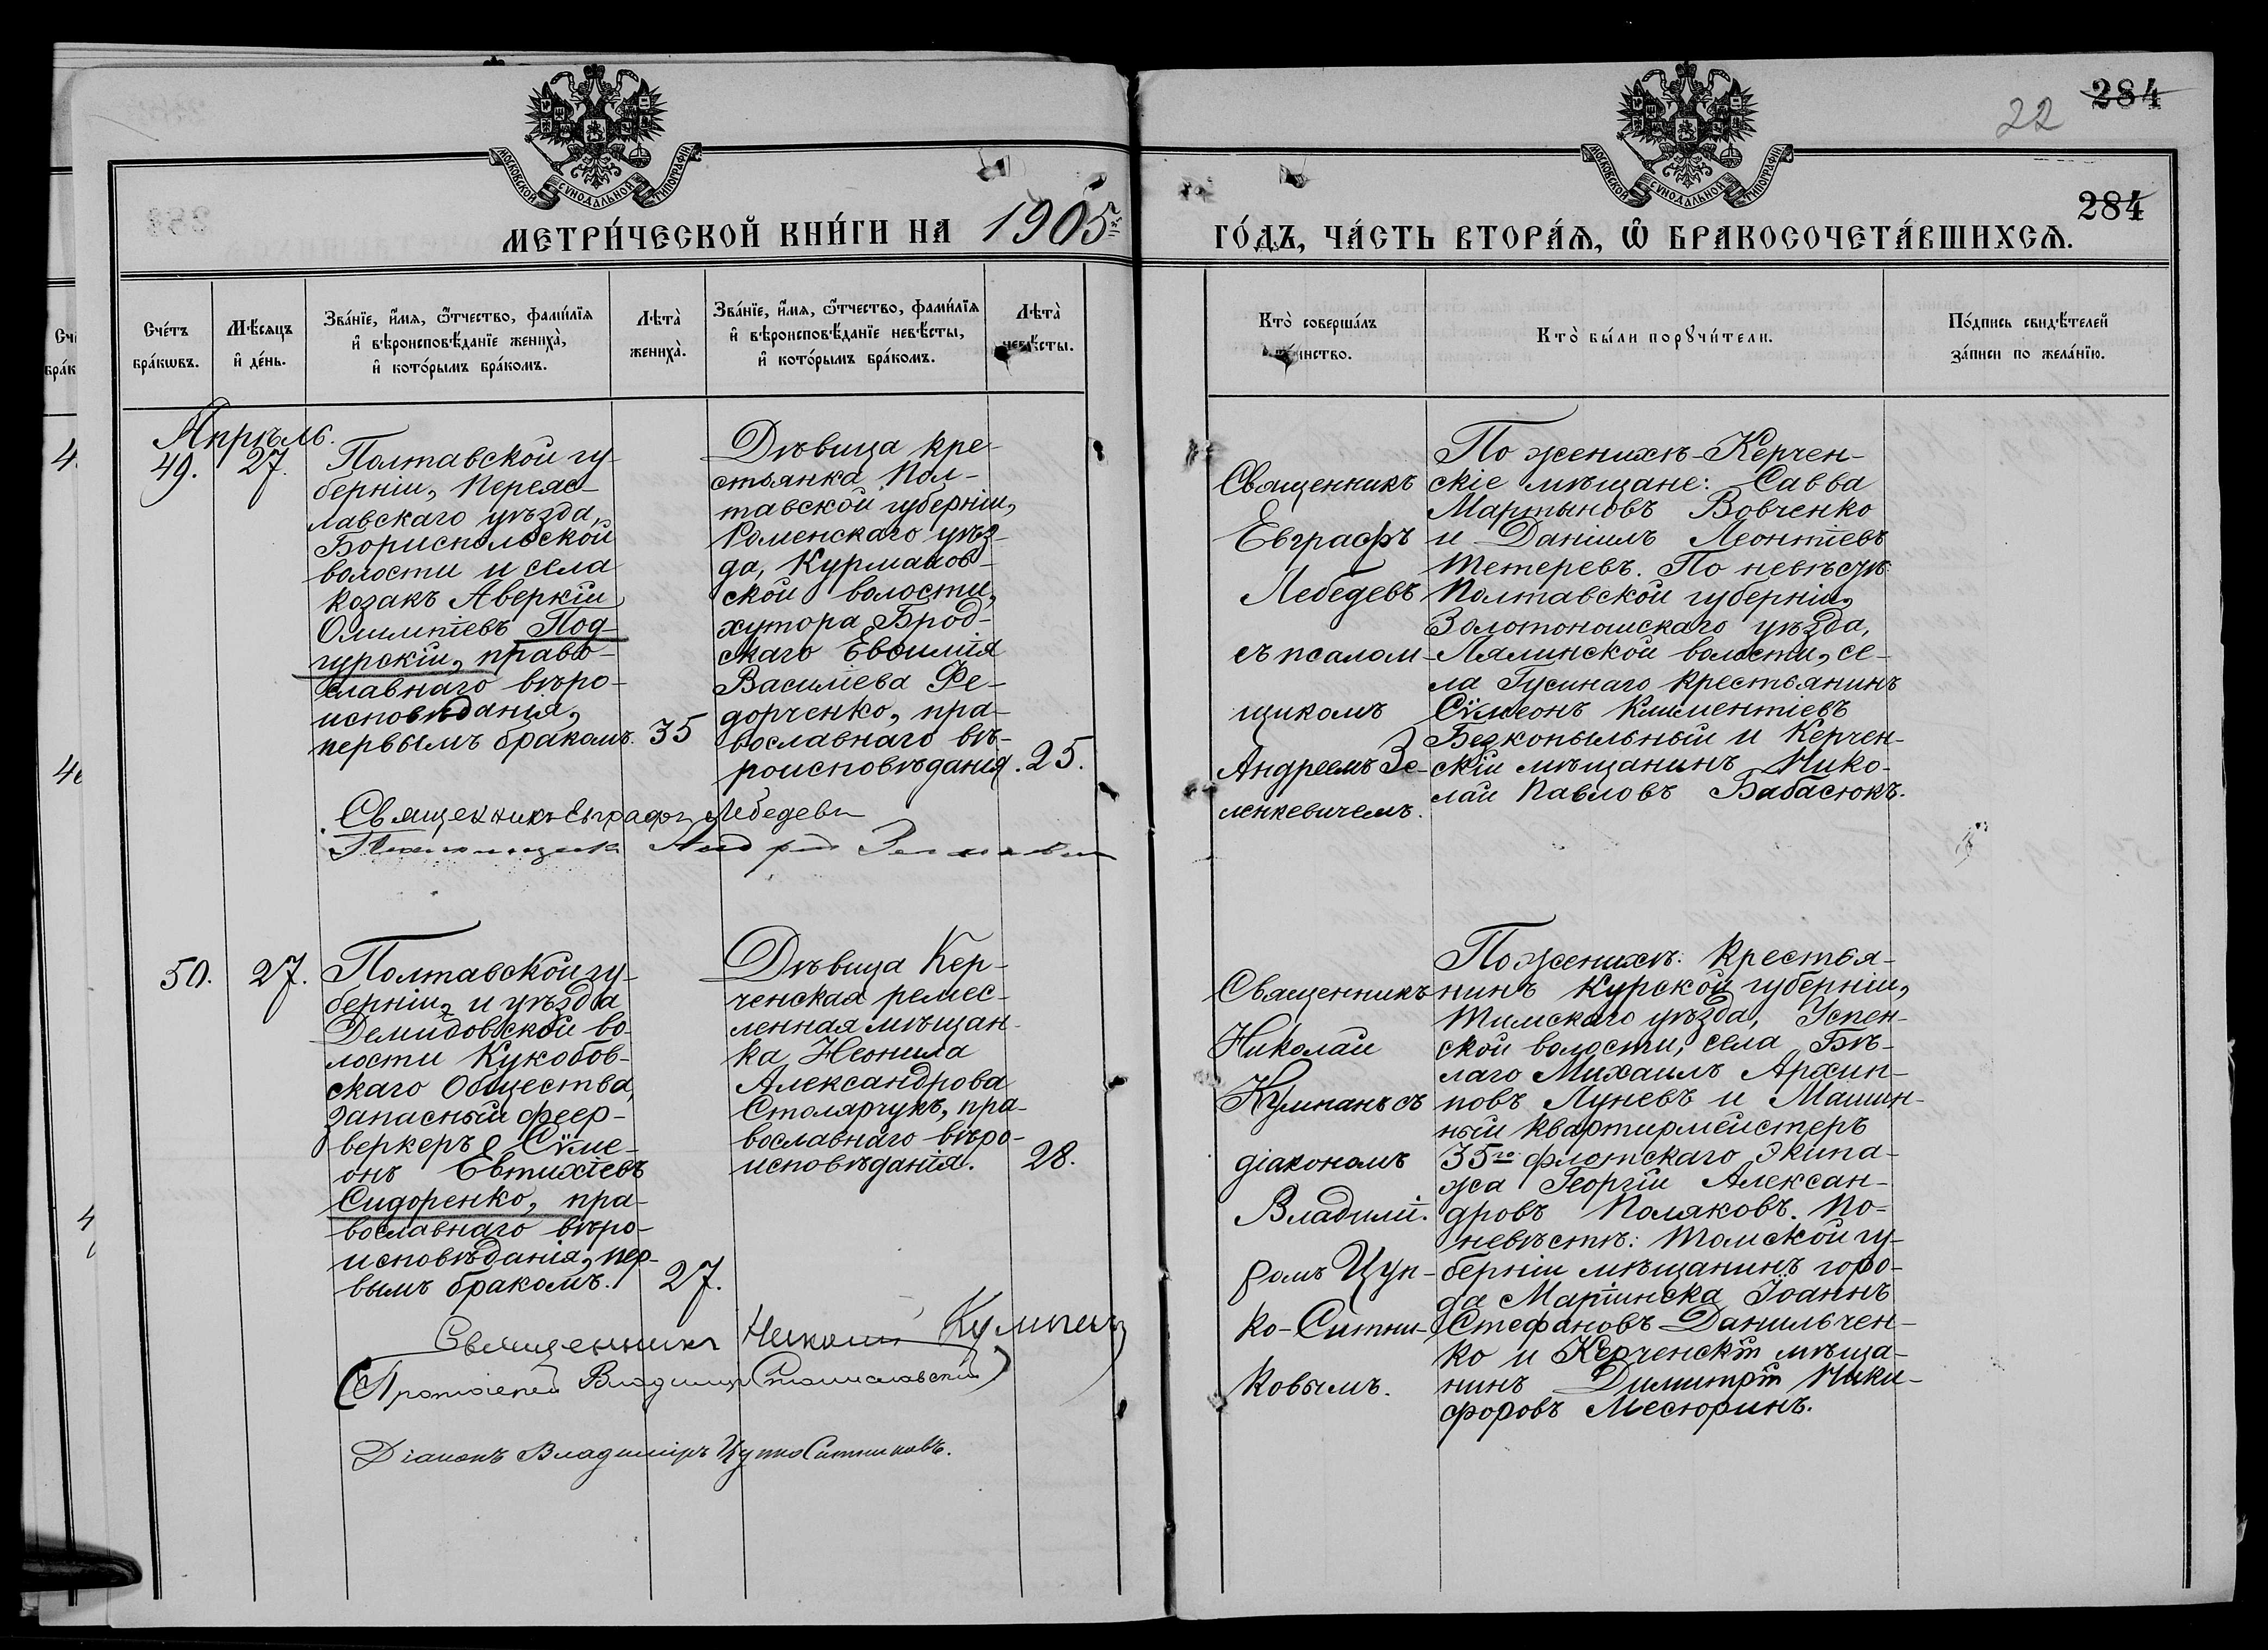 284
22
МОСКОВСКОЙ СѴНОДАЛЬНОЙ ТИПОГРАФІИ
МОСКОВСКОЙ СѴНОДАЛЬНОЙ ТИПОГРАФІИ
284
МЕТРИ́ЧЕСКОЙ КНИ́ГИ НА 1905й
ГО́ДЪ, ЧА́СТЬ ВТОРА́Ѧ, Ѡ БРАКОСОЧЕТА́ВШИХСѦ.
Сче́тъ
бра́кѡвъ.
Мѣ́сяцъ
и҆ де́нь.
Зва́нїе, и҆́мя, ѻ҆́тчество, фами́лїя
и҆ вѣроисповѣ́данїе жениха̀,
и҆ кото́рымъ бра́комъ.
Лѣта̀
жениха̀.
Зва́нїе, и҆́мя, ѻ҆́тчество, фами́лїя
и҆ вѣроисповѣ́данїе невѣ́сты,
и҆ кото́рымъ бра́комъ.
Лѣта̀
невѣ́сты.
Кто̀ соверша́лъ
та́инство.
Кто̀ бы́ли порꙋчи́тели.
По́дпись свидѣ́телей
за́писи по жела́нїю.
Апрѣль.
49.
27.
Полтавской гу-
берніи, Переяс-
лавскаго уѣзда,
Бориспольской
волости и села
козакъ Аверкій
Олимпіевъ Под-
гурскій, право-
славнаго вѣро-
исповѣданія,
первымъ бракомъ.
35
Дѣвица кре-
стьянка Пол-
тавской губерніи,
Роменскаго уѣз-
да, Курманов-
ской волости,
хутора Брод-
скаго Евфимія
Василіева Фе-
дорченко, пра-
вославнаго вѣ-
роисповѣданія.
25.
Священникъ
Евграфъ
Лебедевъ
съ псалом-
щикомъ
Андреемъ Зе-
ленкевичемъ.
По женихѣ - Керчен-
скіе мѣщане: Савва
Мартыновъ Вовченко
и Даніилъ Леонтіевъ
Тетеревъ. По невѣстѣ:
Полтавской губерніи,
Золотоношскаго уѣзда,
Лялинской волости, се-
ла Гусинаго крестьянинъ
Сѵмеонъ Климентіевъ
Безкопыльный и Керчен-
скій мѣщанинъ Нико-
лай Павловъ Бабасюкъ.
Священникъ Евграфъ Лебедевъ
Псаломщикъ Андрей
50.
27.
Полтавской гу-
берніи, и уѣзда
Демидовской во-
лости Кукобов-
скаго Общества,
запасный феер-
веркеръ Сѵме-
онъ Евтихіевъ
Сидоренко, пра-
вославнаго вѣро-
исповѣданія, пер-
вымъ бракомъ.
27.
Дѣвица Кер-
ченская ремес-
ленная мѣщан-
ка Неонила
Александрова
Столярчукъ, пра-
вославнаго вѣро-
исповѣданія.
28.
Священникъ
Николай
Кумпанъ съ
діакономъ
Владимі-
ромъ Цуп-
ко-Ситни-
ковымъ.
По женихѣ: крестья-
нинъ Курской губерніи,
Тимскаго уѣзда, Успен-
ской волости, села Бѣ-
лаго Михаилъ Архип-
повъ Луневъ и Машин-
ный квартирмейстеръ
35го флотскаго Экипа-
жа Георгій Алексан-
дровъ Поляковъ. По-
невѣстѣ: Томской гу-
берніи мѣщанинъ горо-
да Маріинска Іоаннъ
Стефановъ Данильчен-
ко и Керченскій мѣща-
нинъ Димитрій Ники-
форовъ Месюринъ.
Священникъ Николай Кумпанъ
(Протоіерей Владиміръ Станиславскій)
Діаконъ Владиміръ Цупко Ситниковъ.